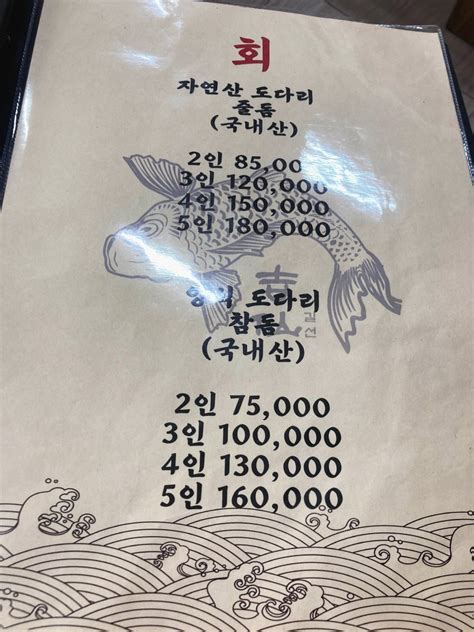 회
자연산 도다리
줄돔
(국내산)
2인 85,00
3인 120,000
4인 150,000
5인 180,000
도다리
참돔
(국내산)
길선
2인 75,000
3인 100,000
4인 130,000
5인 160,000